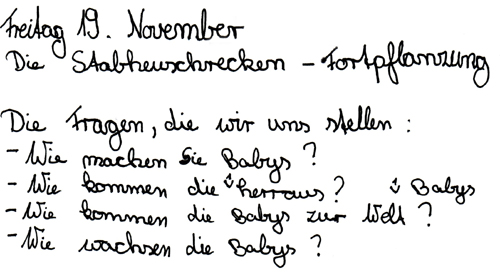 Freitag 19. November
Die Stabheuschrecken - Fortpflanzung
Die Fragen, die wir uns stellen :
- Wie machen sie Babys ?
- Wie kommen die herraus ? Babys
- Wie kommen die Babys zur Welt ?
- Wie wachsen die Babys ?